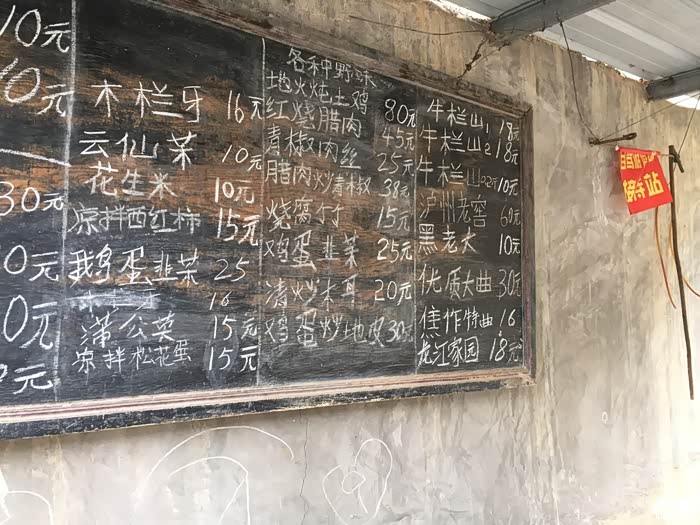 10元
0元
30元
0元
0元
元
木栏牙 16元
云仙菜 10元
花生米 10元
凉拌西红柿 15元
鹅蛋韭菜 25
16
蒲公英 15元
凉拌松花蛋 15元
各种野味
地火炖土鸡 80元
红烧腊肉 45元
青椒肉丝 25元
腊肉炒青椒 38元
烧腐竹 15元
鸡蛋韭菜 25元
清炒木耳 20元
鸡蛋炒地皮 30元
牛栏山1 18元
牛栏山2 18元
牛栏山 10元
泸州老窖 60元
黑老太 10元
优质大曲 30元
佳作特曲 16
龙江家园 18元
接待站